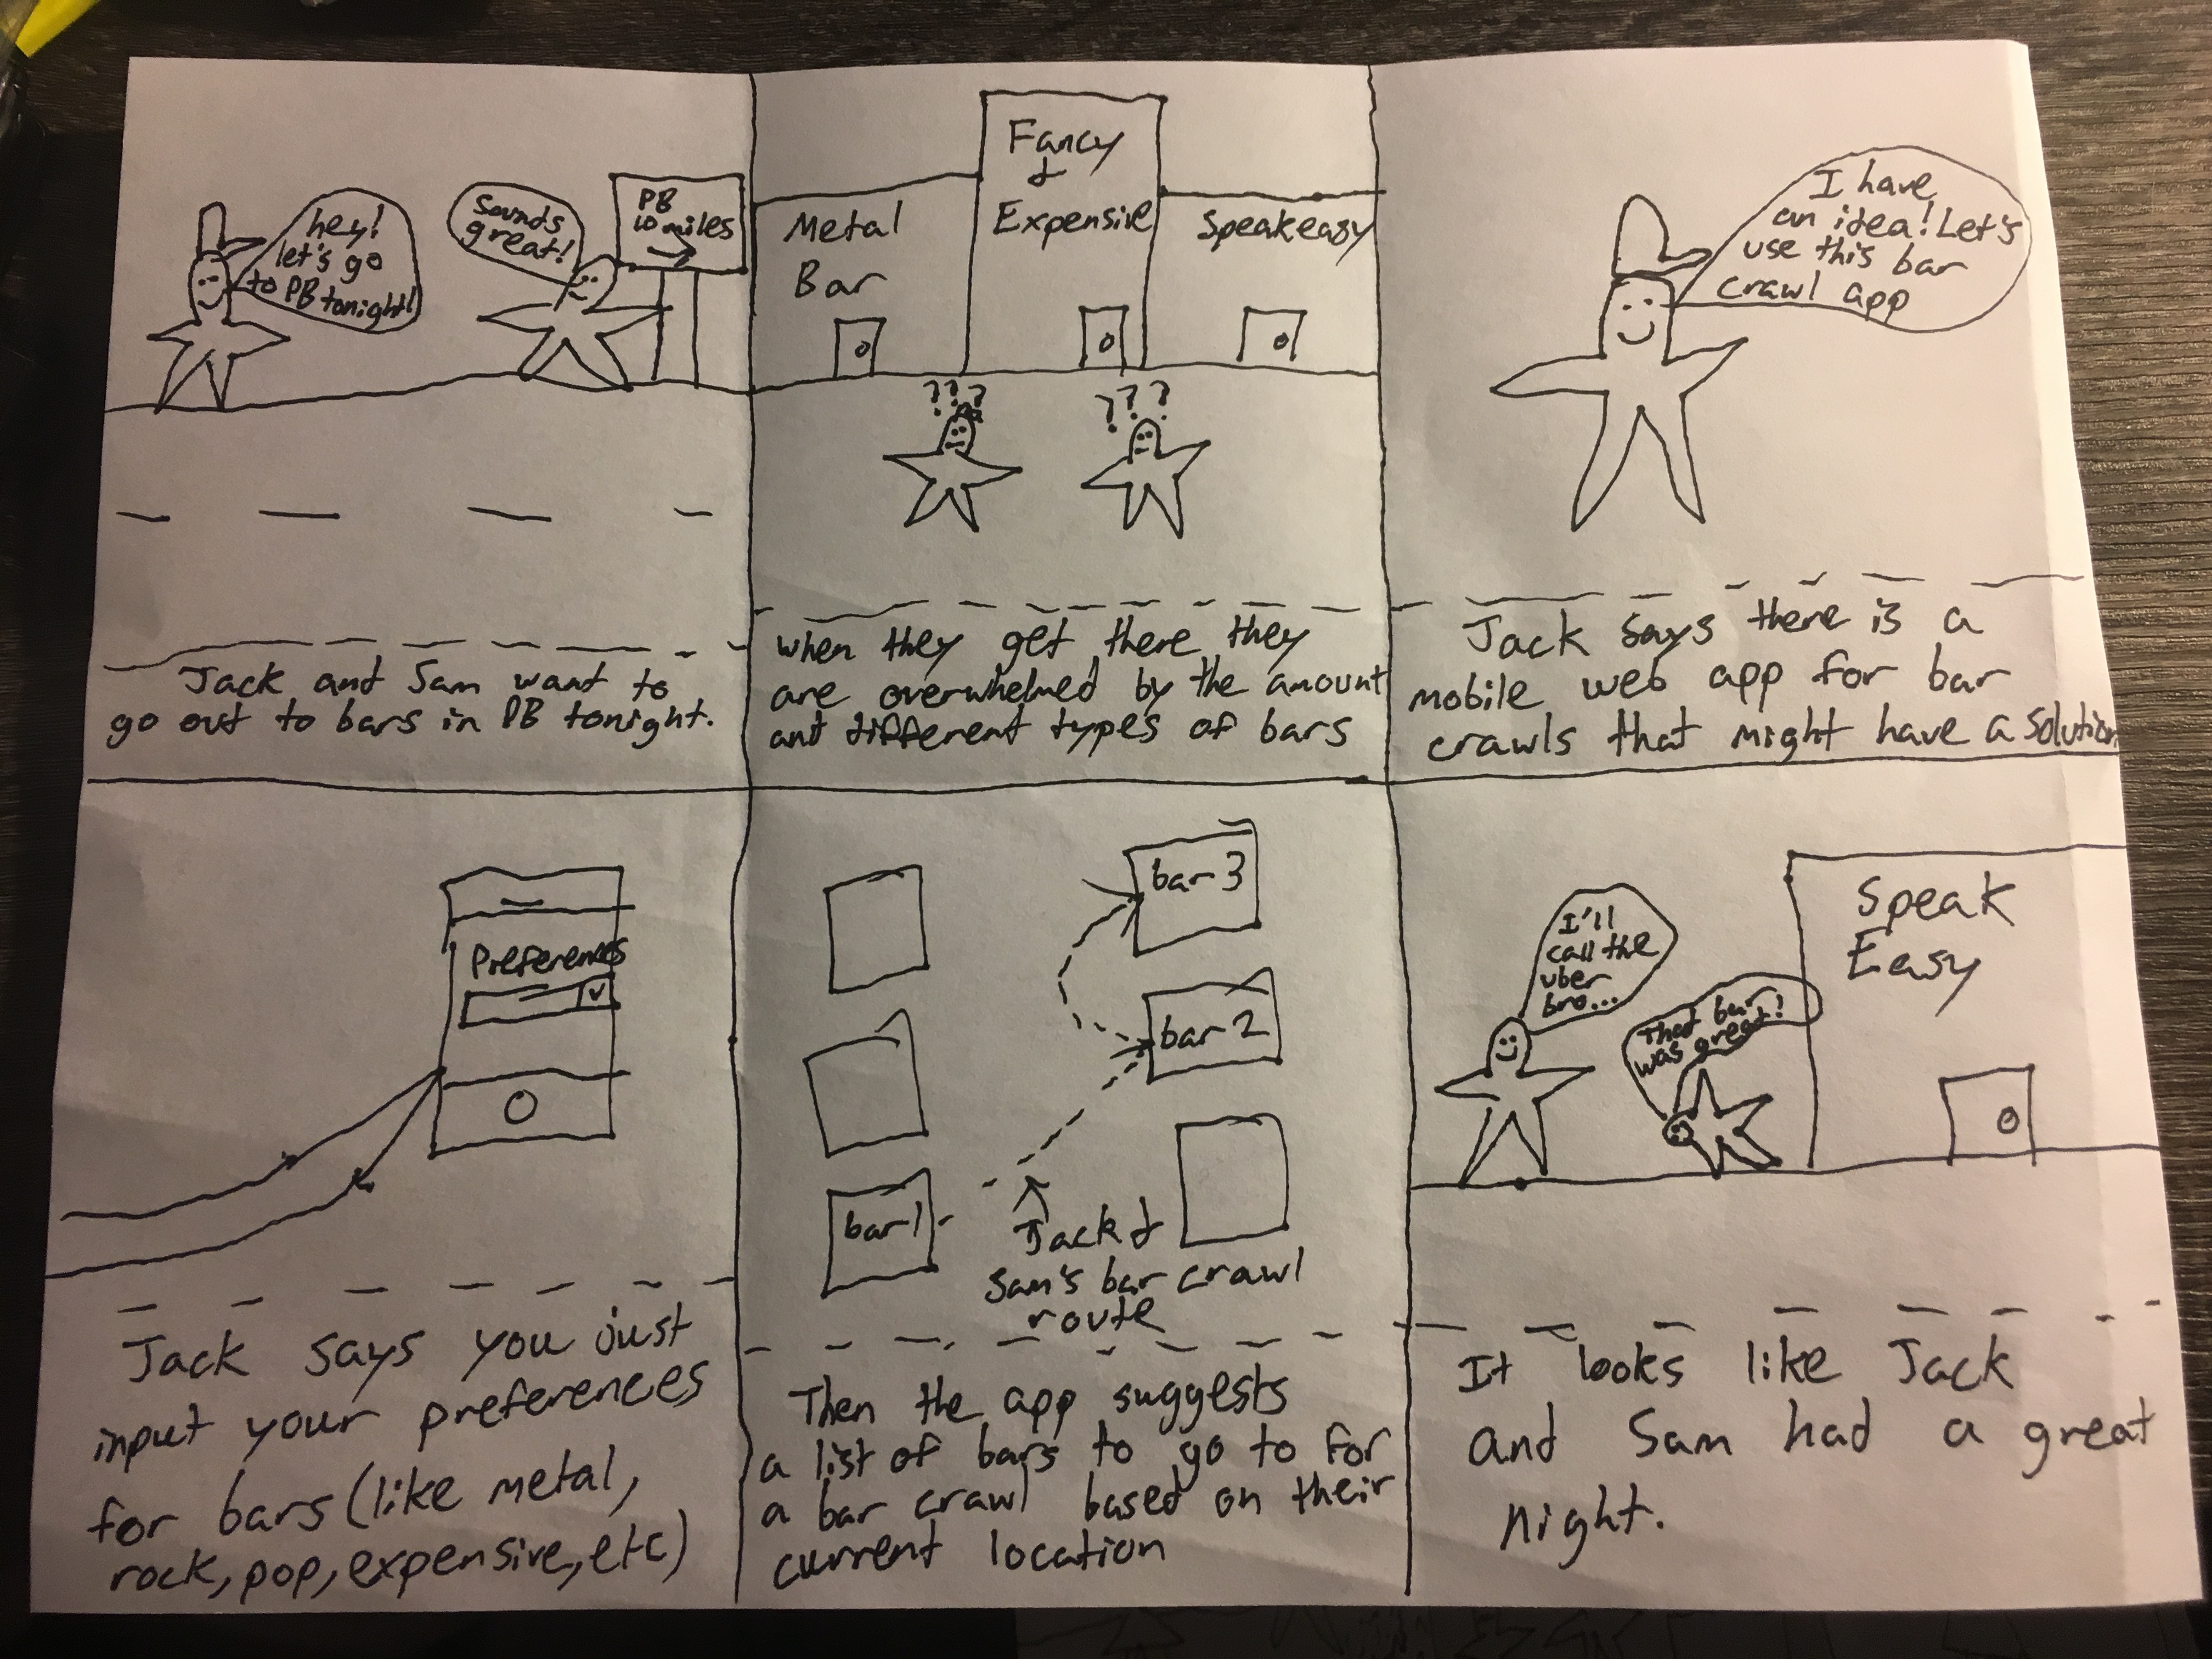 hey!
let's go
to PB tonight!
Sounds
great!
PB
10 miles
Jack and Sam want to
go out to bars in PB tonight.
Metal
Bar
Fancy
+
Expensie
Speakeasy
???
???
when they get there they
are overwhelmed by the amount
and different types of bars
I have
an idea! Let's
use this bar
crawl app
Jack says there is a
mobile web app for bar
crawls that might have a solution
Preferences
Jack says you just
input your preferences
for bars (like metal,
rock, pop, expensive, etc)
bar 1
bar 2
bar 3
Jack +
Sam's bar crawl
route
Then the app suggests
a list of bars to go to for
a bar crawl based on their
current location
I'll
call the
uber
bro...
That bar
was great!
Speak
Easy
It looks like Jack
and Sam had a great
night.